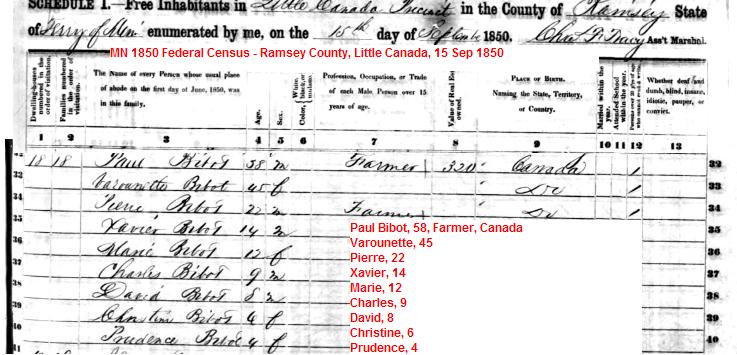 SCHEDULE I.—Free Inhabitants in Little Canada Precinct in the County of Ramsey State
of Terry of Min enumerated by me, on the 15th day of September 1850. Chas F. Tracy Ass't Marshal.
MN 1850 Federal Census - Ramsey County, Little Canada, 15 Sep 1850
Dwelling-houses numbered in the order of visitation.
Families numbered in the order of visitation.
The Name of every Person whose usual place of abode on the first day of June, 1850, was in this family.
Age.
Sex.
Color, White, black, or mulatto.
Profession, Occupation, or Trade of each Male Person over 15 years of age.
Value of Real Estate owned.
PLACE OF BIRTH. Naming the State, Territory, or Country.
Married within the year.
Attended School within the year.
Persons over 20 y'rs of age who cannot read & write.
Whether deaf and dumb, blind, insane, idiotic, pauper, or convict.
1 2 3 4 5 6 7 8 9 10 11 12 13
18 18 Paul Bibot 58 m Farmer 320 Canada / 32
33 Varounette Bibot 45 f Do / 33
34 Pierre Bibot 22 m Farmer Do / 34
35 Xavier Bibot 14 m 35
36 Marie Bibot 12 f 36
37 Charles Bibot 9 m 37
38 David Bibot 8 m 38
39 Christine Bibot 6 f 39
40 Prudence Bibot 4 f 40
41
Paul Bibot, 58, Farmer, Canada
Varounette, 45
Pierre, 22
Xavier, 14
Marie, 12
Charles, 9
David, 8
Christine, 6
Prudence, 4